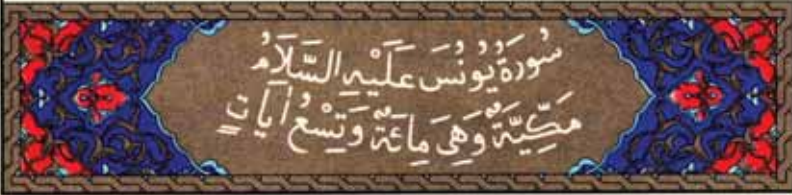 سُورَةُ يُونُسَ عَلَيْهِ السَّلَامُ
مَكِّيَّةٌ وَهِيَ مِائَةٌ وَتِسْعُ اٰيَاتٍ